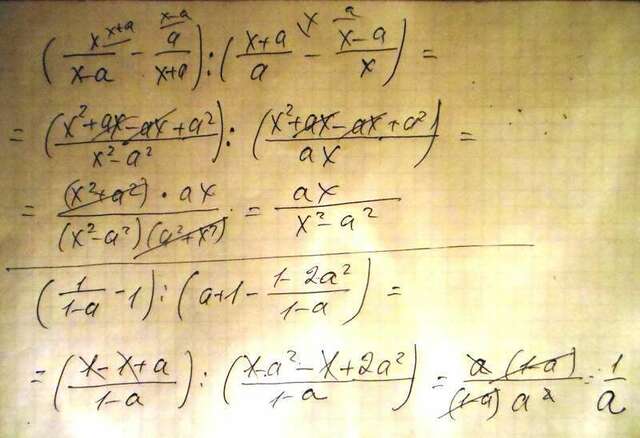 (x^{x+a}/(x-a) - a^{x-a}/(x+a)) : ((x+a)^x/a - (x-a)^a/x) =
= ((x²+ax-ax+a²)/(x²-a²)) : ((x²+ax-ax+a²)/(ax)) =
= ((x²+a²)·ax)/((x²-a²)(a²+x²)) = ax/(x²-a²)
(1/(1-a) - 1) : (a+1 - (1-2a²)/(1-a)) =
= ((1-1+a)/(1-a)) : ((1-a²-1+2a²)/(1-a)) = (a(1-a))/((1-a)a²) = 1/a